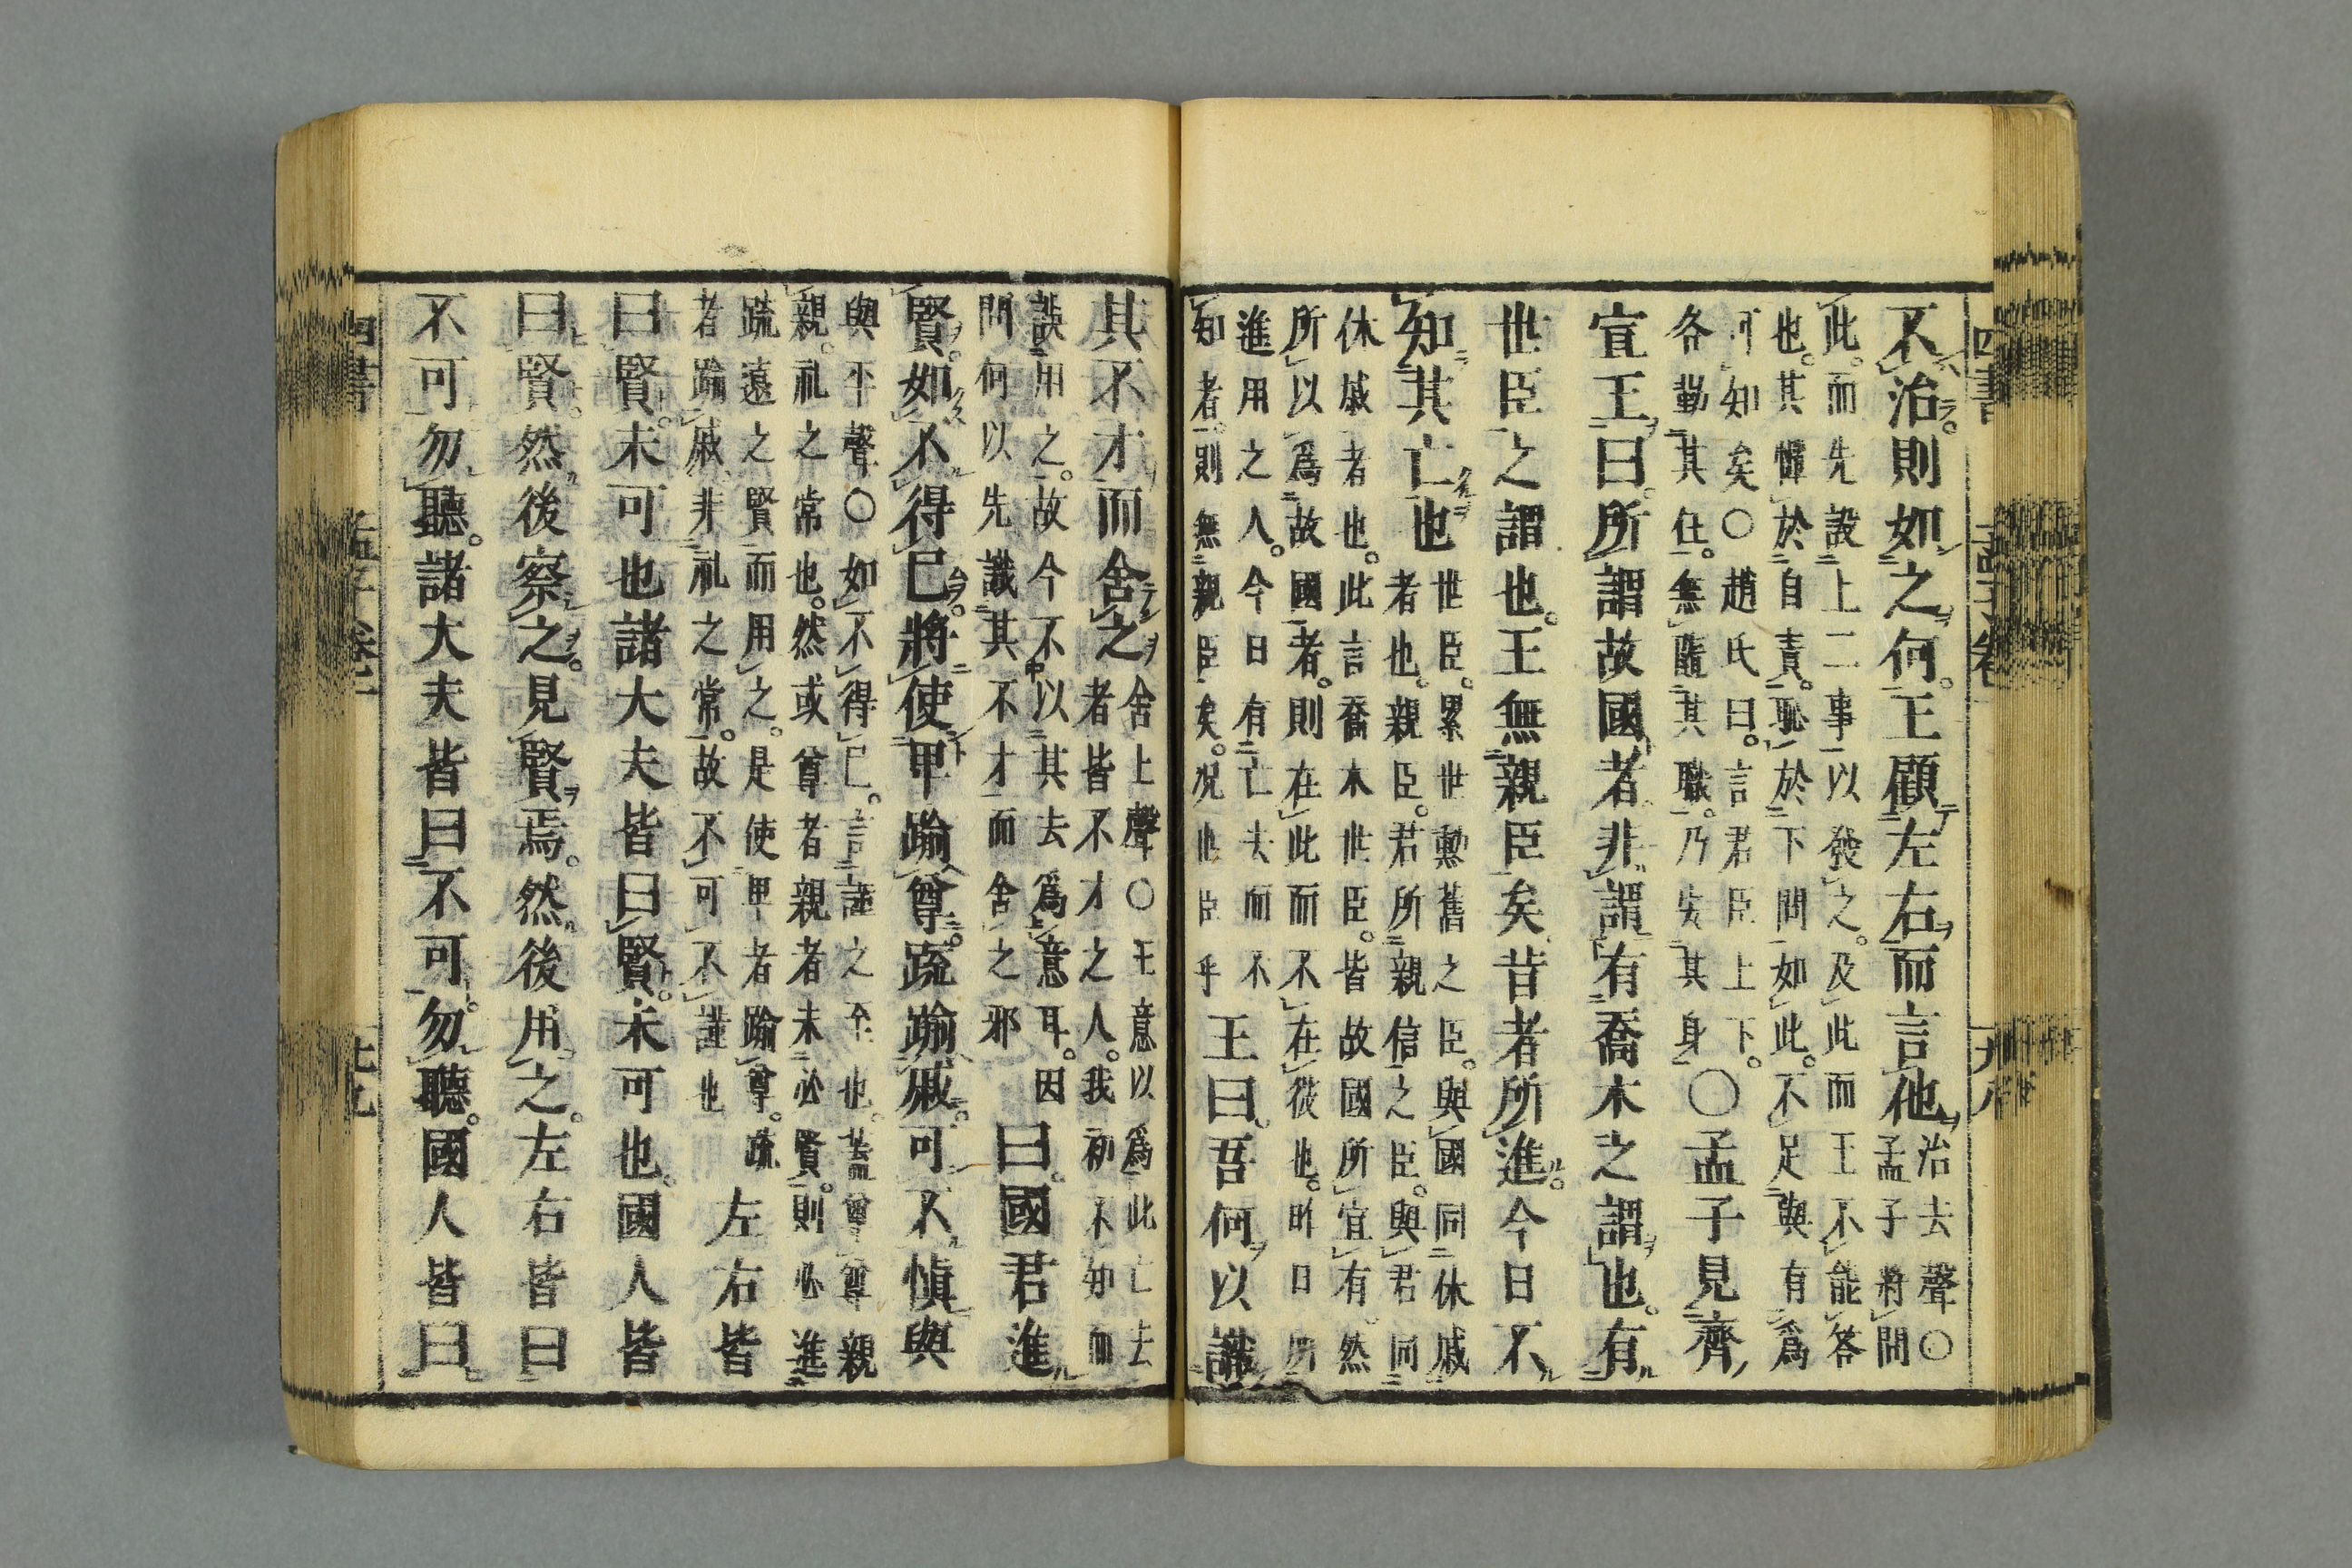 四書 孟子卷 十八
不治。則如之何。王顧左右而言他
治去聲〇
孟子將問
此。而先設上二事以發之。及此而王不能答
也。其憚於自責。恥於下問如此。不足與有爲
可知矣〇趙氏曰。言君臣上下。
各勤其任。無墮其職。乃安其身
〇孟子見齊
宣王曰。所謂故國者非謂有喬木之謂也。有
世臣之謂也。王無親臣矣昔者所進。今日不
知其亡也
世臣。累世勲舊之臣。與國同休戚
者也。親臣。君所親信之臣。與君同
休戚者也。此言喬木世臣。皆故國所宜有。然
所以爲故國者。則在此而不在彼也。昨日所
進用之人。今日有亡去而不
知者。則無親臣矣。况世臣乎
王曰。吾何以識
其不才而舍之
舍上聲〇王意以爲此亡去
者皆不才之人。我初不知而
誤用之。故今不以其去爲意耳。因
問何以先識其不才而舍之邪
曰。國君進
賢。如不得已。將使卑踰尊。疏踰戚。可不愼與
與平聲〇如不得已。言謹之至也。蓋尊尊親
親。礼之常也。然或尊者親者未必賢。則必進
疏遠之賢而用之。是使卑者踰尊。疏
者踰戚非礼之常。故不可不謹也
左右皆
曰賢。未可也諸大夫皆曰賢。未可也。國人皆
曰賢。然後察之。見賢焉。然後用之。左右皆曰
不可勿聽。諸大夫皆曰不可。勿聽。國人皆曰
四書 孟子卷 十九